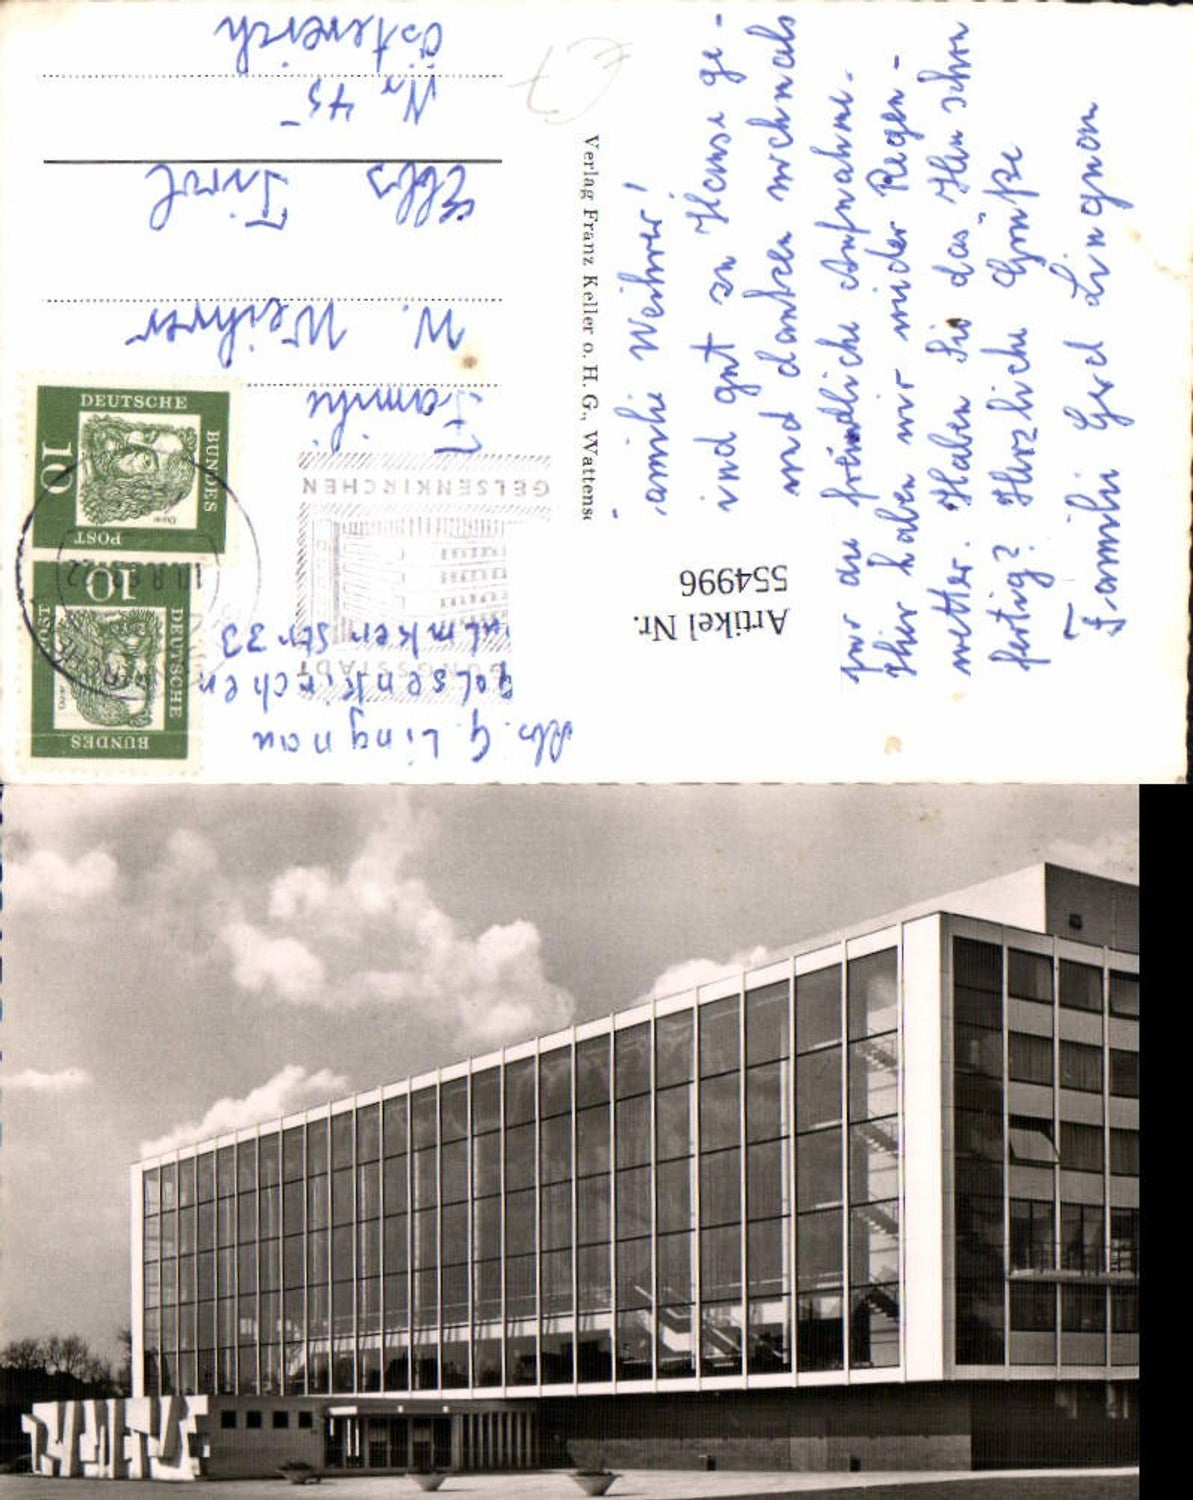 Familie Weihrer!
sind gut zu Hause ge-
und danken nochmals
für die freundliche Aufnahme.
Hier haben wir wieder Regen-
wetter. Haben Sie das Heu schon
fertig? Herzliche Grüße
Familie Gerd Lingnau
Verlag Franz Keller o. H. G., Wattensc
Artikel Nr.
554996
Abs. G. Lingnau
Gelsenkirchen
str 33
Familie
W. Weihrer
Ebbs Tirol
Nr 45
Österreich
GELSENKIRCHEN
DEUTSCHE
BUNDES
POST
10
Dürer
DEUTSCHE
BUNDES
POST
10
Dürer